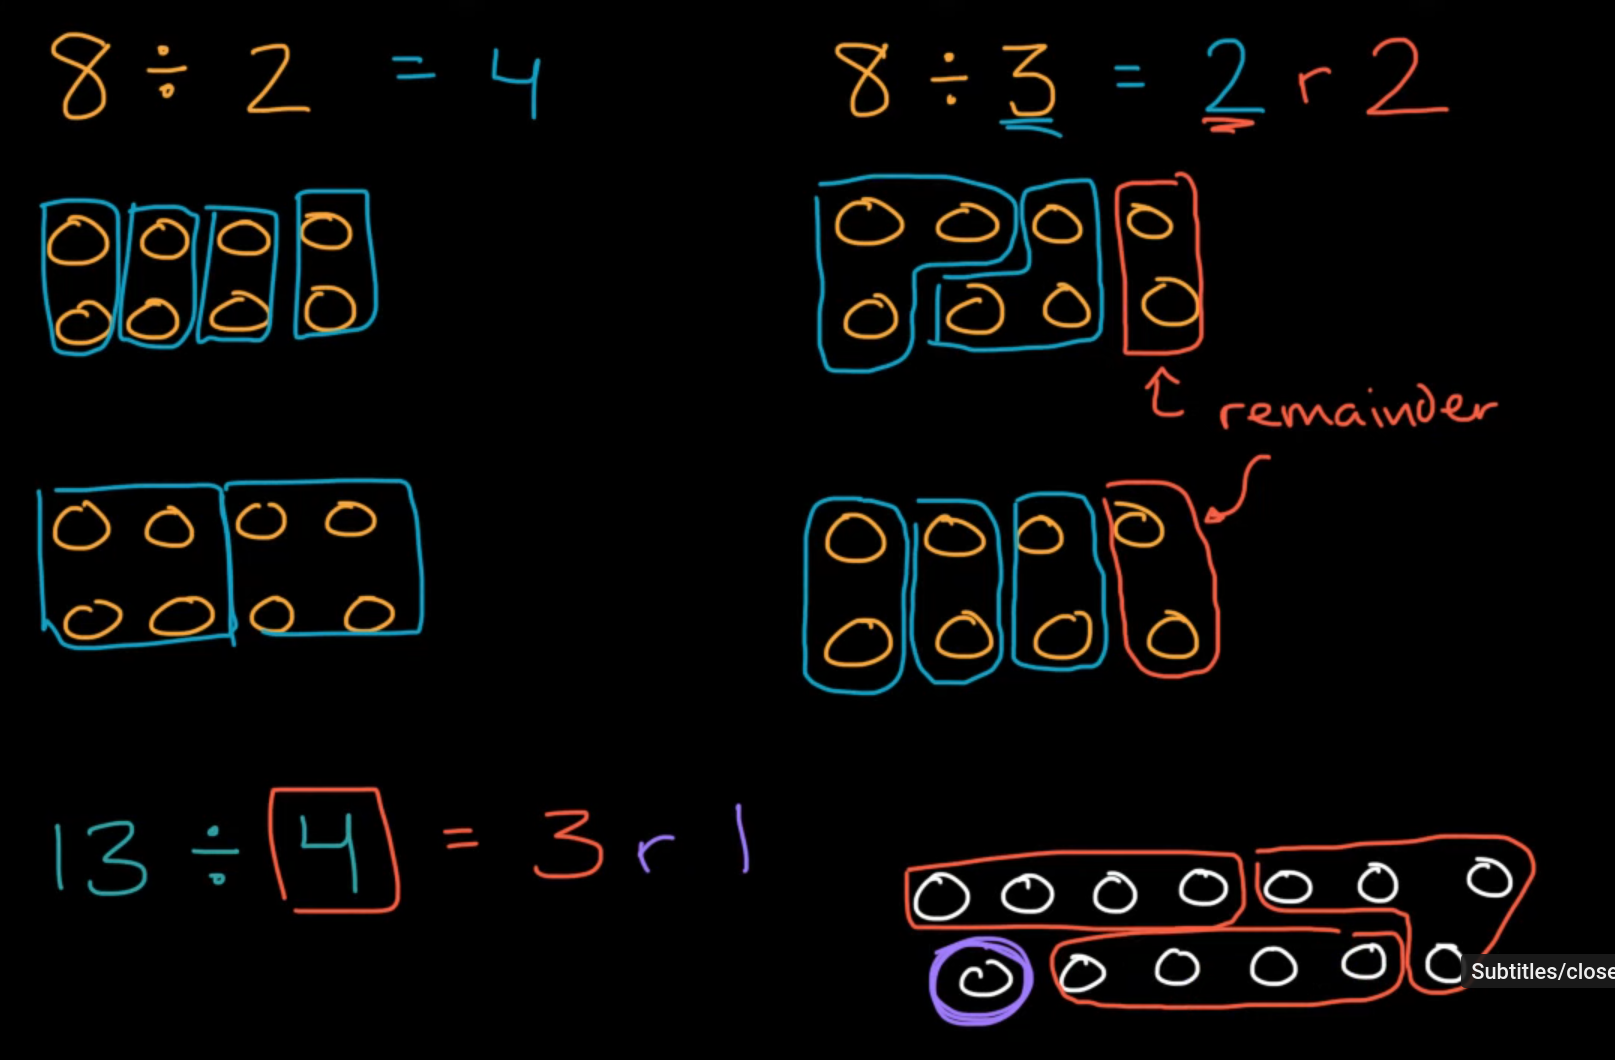 8 ÷ 2 = 4
8 ÷ 3 = 2 r 2
remainder
13 ÷ 4 = 3 r 1
Subtitles/close